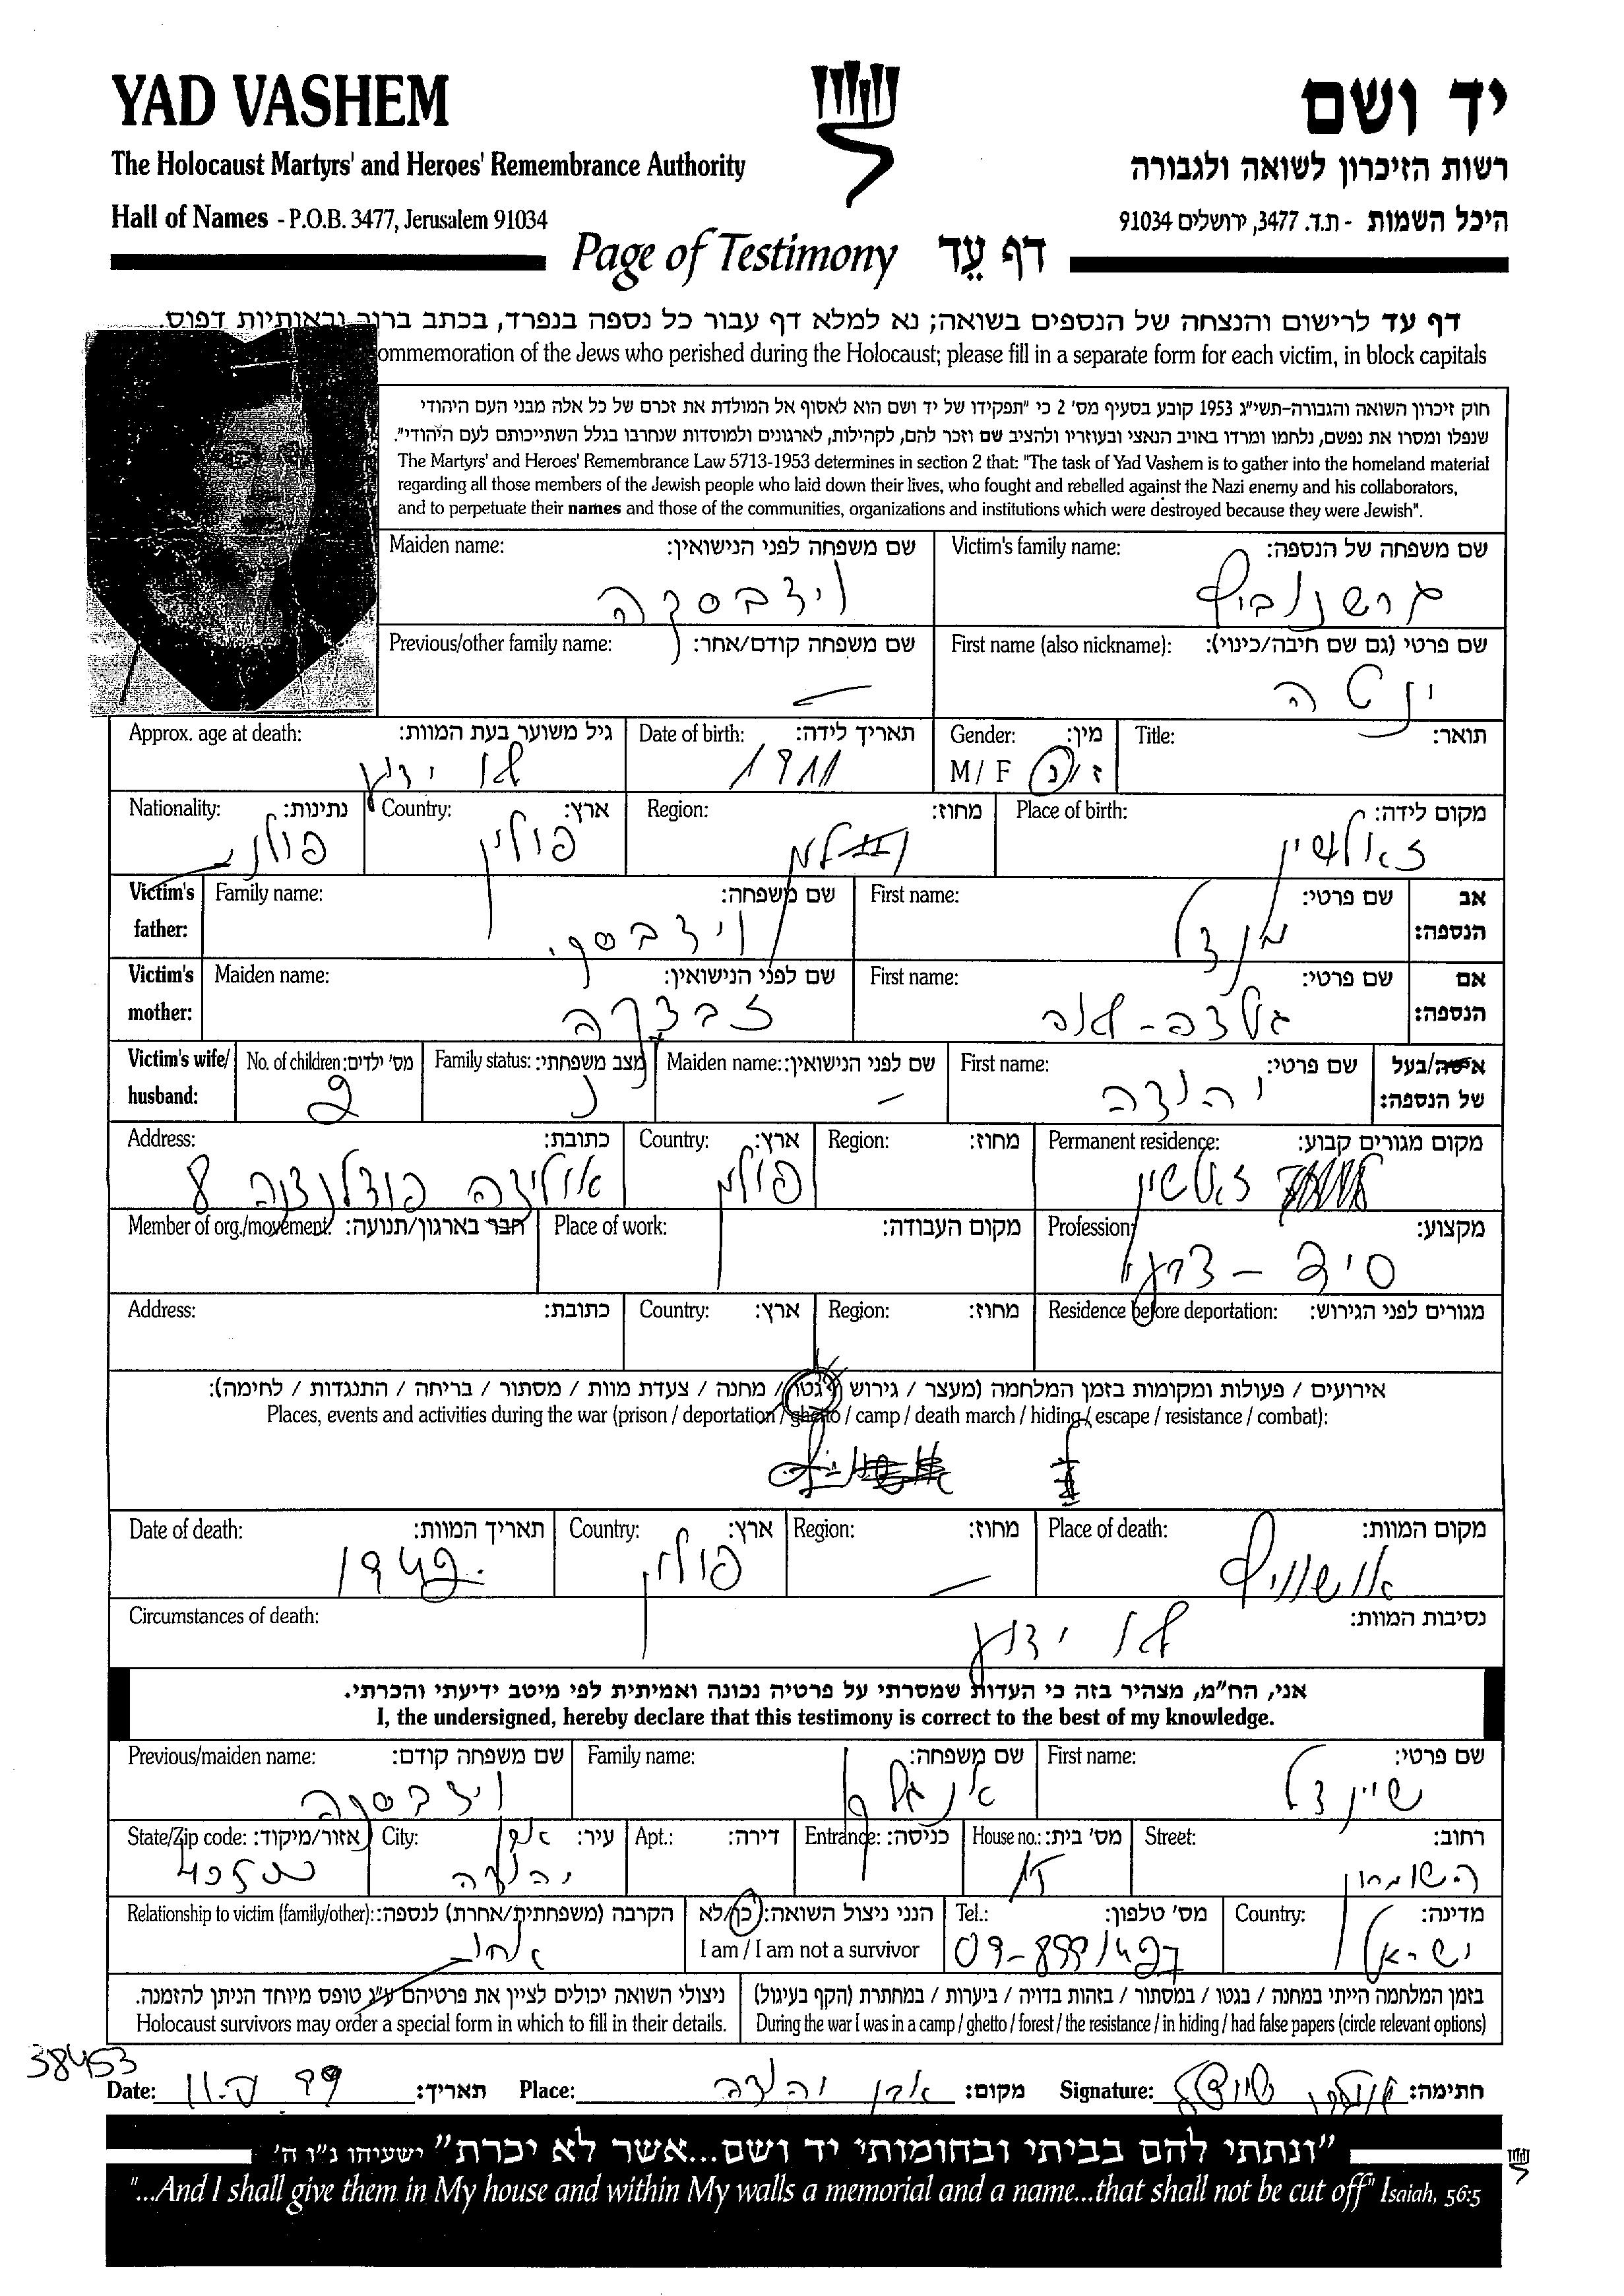 YAD VASHEM
יד ושם
The Holocaust Martyrs' and Heroes' Remembrance Authority
רשות הזיכרון לשואה ולגבורה
Hall of Names - P.O.B. 3477, Jerusalem 91034
היכל השמות - ת.ד. 3477, ירושלים 91034
Page of Testimony דף עֵד
דף עד לרישום והנצחה של הנספים בשואה; נא למלא דף עבור כל נספה בנפרד, בכתב ברור ובאותיות דפוס.
ommemoration of the Jews who perished during the Holocaust; please fill in a separate form for each victim, in block capitals
חוק זיכרון השואה והגבורה-תשי"ג 1953 קובע בסעיף מס' 2 כי "תפקידו של יד ושם הוא לאסוף אל המולדת את זכרם של כל אלה מבני העם היהודי
שנפלו ומסרו את נפשם, נלחמו ומרדו באויב הנאצי ובעוזריו ולהציב שם וזכר להם, לקהילות, לארגונים ולמוסדות שנחרבו בגלל השתייכותם לעם היהודי".
The Martyrs' and Heroes' Remembrance Law 5713-1953 determines in section 2 that: "The task of Yad Vashem is to gather into the homeland material
regarding all those members of the Jewish people who laid down their lives, who fought and rebelled against the Nazi enemy and his collaborators,
and to perpetuate their names and those of the communities, organizations and institutions which were destroyed because they were Jewish".
Victim's family name: שם משפחה של הנספה:
גרשונוביץ
Maiden name: שם משפחה לפני הנישואין:
וידבסקה
First name (also nickname): שם פרטי (גם שם חיבה/כינוי):
ינטה
Previous/other family name: שם משפחה קודם/אחר:
–
Title: תואר:
Gender: מין:
M / F ז/נ
Date of birth: תאריך לידה:
1911
Approx. age at death: גיל משוער בעת המוות:
לא ידוע
Place of birth: מקום לידה:
Region: מחוז:
Country: ארץ:
פולין
Nationality: נתינות:
פולנית
Victim's father: אב הנספה:
First name: שם פרטי:
מנדל
Family name: שם משפחה:
וידבסקי
Victim's mother: אם הנספה:
First name: שם פרטי:
Maiden name: שם לפני הנישואין:
Victim's wife/ husband: אישה/בעל של הנספה:
First name: שם פרטי:
יהודה
Maiden name: שם לפני הנישואין:
–
Family status: מצב משפחתי:
נ
No. of children: מס' ילדים:
2
Permanent residence: מקום מגורים קבוע:
Region: מחוז:
Country: ארץ:
פולין
Address: כתובת:
8
Profession: מקצוע:
Place of work: מקום העבודה:
Member of org./movement: חבר בארגון/תנועה:
Residence before deportation: מגורים לפני הגירוש:
Region: מחוז:
Country: ארץ:
Address: כתובת:
אירועים / פעולות ומקומות בזמן המלחמה (מעצר / גירוש / גטו / מחנה / צעדת מוות / מסתור / בריחה / התנגדות / לחימה):
Places, events and activities during the war (prison / deportation / ghetto / camp / death march / hiding / escape / resistance / combat):
Place of death: מקום המוות:
אושוויץ
Region: מחוז:
–
Country: ארץ:
פולין
Date of death: תאריך המוות:
1942
Circumstances of death: נסיבות המוות:
לא ידוע
אני, הח"מ, מצהיר בזה כי העדות שמסרתי על פרטיה נכונה ואמיתית לפי מיטב ידיעתי והכרתי.
I, the undersigned, hereby declare that this testimony is correct to the best of my knowledge.
First name: שם פרטי:
שיינדל
Family name: שם משפחה:
Previous/maiden name: שם משפחה קודם:
וידבסקה
Street: רחוב:
House no.: מס' בית:
Entrance: כניסה:
Apt.: דירה:
City: עיר:
אבן יהודה
State/Zip code: אזור/מיקוד:
40500
Country: מדינה:
ישראל
Tel.: מס' טלפון:
הנני ניצול השואה: כן/לא
I am / I am not a survivor
Relationship to victim (family/other): הקרבה (משפחתית/אחרת) לנספה:
אחות
בזמן המלחמה הייתי במחנה / בגטו / במסתור / בזהות בדויה / ביערות / במחתרת (הקף בעיגול)
During the war I was in a camp / ghetto / forest / the resistance / in hiding / had false papers (circle relevant options)
ניצולי השואה יכולים לציין את פרטיהם ע"ג טופס מיוחד הניתן להזמנה.
Holocaust survivors may order a special form in which to fill in their details.
38453
Date: תאריך:
Place: אבן יהודה מקום:
Signature: חתימה:
"ונתתי להם בביתי ובחומותי יד ושם...אשר לא יכרת" ישעיהו נ"ו ה'
"...And I shall give them in My house and within My walls a memorial and a name...that shall not be cut off" Isaiah, 56:5